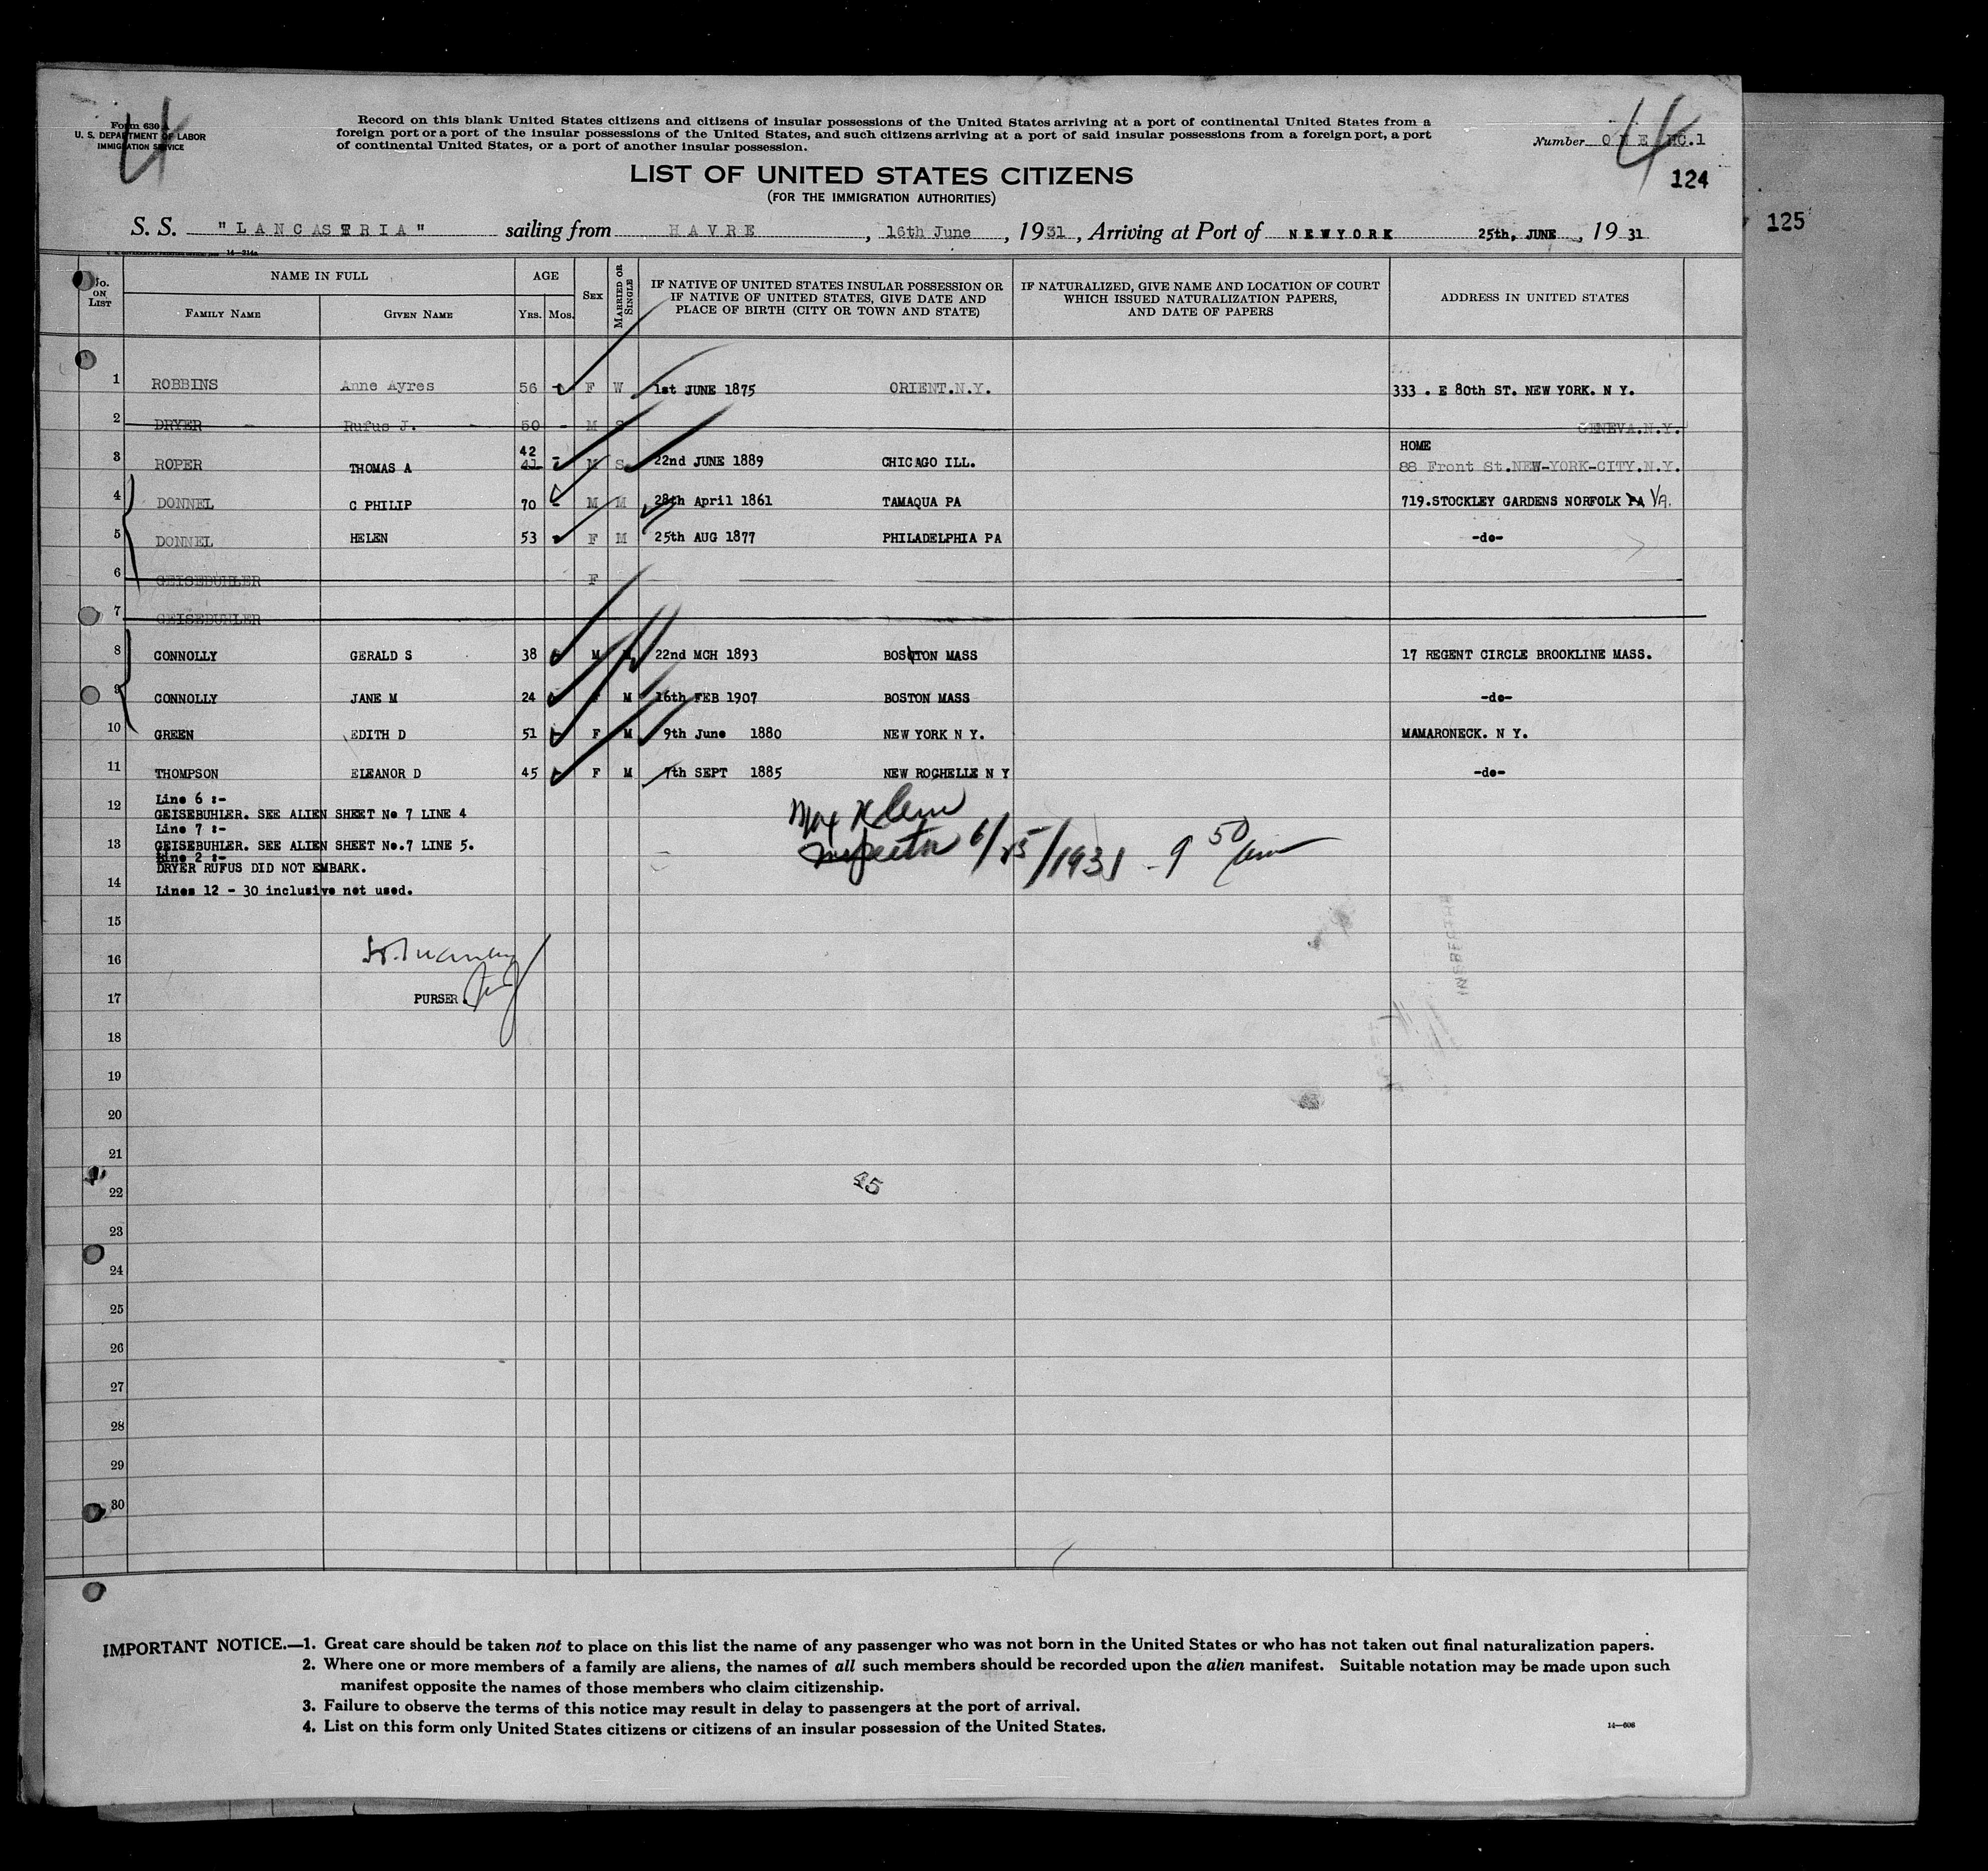 Form 630
U. S. DEPARTMENT OF LABOR
IMMIGRATION SERVICE
4
Record on this blank United States citizens and citizens of insular possessions of the United States arriving at a port of continental United States from a
foreign port or a port of the insular possessions of the United States, and such citizens arriving at a port of said insular possessions from a foreign port, a port
of continental United States, or a port of another insular possession.
4
Number ONE NO.1
124
125
LIST OF UNITED STATES CITIZENS
(FOR THE IMMIGRATION AUTHORITIES)
S. S. "LANCASTRIA" sailing from HAVRE, 16th June, 1931, Arriving at Port of NEWYORK 25th, JUNE, 1931
No. ON LIST NAME IN FULL AGE SEX MARRIED OR SINGLE IF NATIVE OF UNITED STATES INSULAR POSSESSION OR IF NATIVE OF UNITED STATES, GIVE DATE AND PLACE OF BIRTH (CITY OR TOWN AND STATE) IF NATURALIZED, GIVE NAME AND LOCATION OF COURT WHICH ISSUED NATURALIZATION PAPERS, AND DATE OF PAPERS ADDRESS IN UNITED STATES
FAMILY NAME GIVEN NAME YRS. MOS.
1 ROBBINS Anne Ayres 56 - F W 1st JUNE 1875 ORIENT.N.Y. 333 . E 80th ST. NEW YORK. N Y.
2 DRYER - Rufus J. - 50 - M S GENEVA.N.Y.
HOME
3 ROPER THOMAS A 42 41 - M S 22nd JUNE 1889 CHICAGO ILL. 88 Front St.NEW-YORK-CITY.N.Y.
4 DONNEL C PHILIP 70 - M M 28th April 1861 TAMAQUA PA 719.STOCKLEY GARDENS NORFOLK PA VA.
5 DONNEL HELEN 53 - F M 25th AUG 1877 PHILADELPHIA PA -do-
6 GEISEBUHLER F
7 GEISEBUHLER
8 CONNOLLY GERALD S 38 M M 22nd MCH 1893 BOSTON MASS 17 REGENT CIRCLE BROOKLINE MASS.
9 CONNOLLY JANE M 24 F M 16th FEB 1907 BOSTON MASS -do-
10 GREEN EDITH D 51 - F M 9th June 1880 NEW YORK N Y. MAMARONECK. N Y.
11 THOMPSON ELEANOR D 45 - F M 7th SEPT 1885 NEW ROCHELLE N Y -do-
Line 6 :-
12 GEISEBUHLER. SEE ALIEN SHEET No 7 LINE 4
Line 7 :-
13 GEISEBUHLER. SEE ALIEN SHEET No.7 LINE 5.
Line 2 :-
DRYER RUFUS DID NOT EMBARK.
14 Lines 12 - 30 inclusive not used.
Max Klein
Inspector 6/25/1931 - 9 50 am
15
16
17 PURSER.
18
19
20
21
45
22
23
24
25
26
27
28
29
30
IMPORTANT NOTICE.—1. Great care should be taken not to place on this list the name of any passenger who was not born in the United States or who has not taken out final naturalization papers.
2. Where one or more members of a family are aliens, the names of all such members should be recorded upon the alien manifest. Suitable notation may be made upon such
manifest opposite the names of those members who claim citizenship.
3. Failure to observe the terms of this notice may result in delay to passengers at the port of arrival.
4. List on this form only United States citizens or citizens of an insular possession of the United States.
14—608